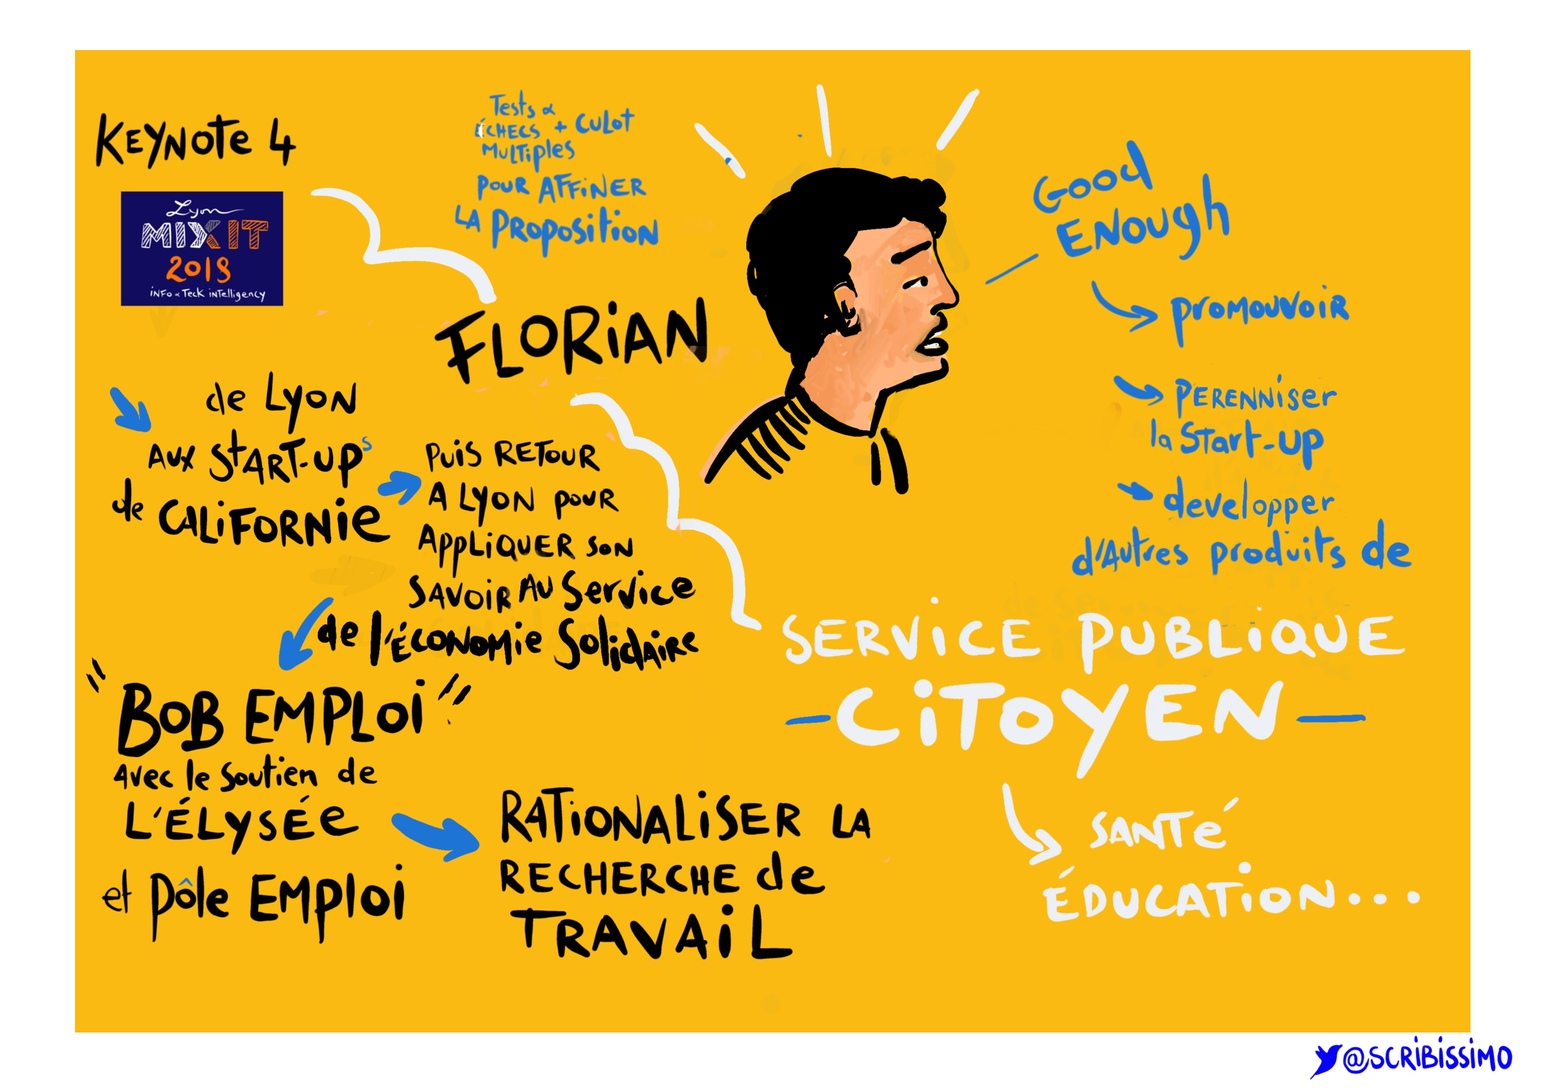 KEYNOTE 4
Lyon
MIXIT
2019
iNFO & TECK iNTElligENCY
Tests &
ÉCHECS + CULOT
MULTIPLES
POUR AFFINER
LA PROPOSITION
FLORIAN
GOOD
ENOUGH
PROMOUVOIR
PERENNISER
la START-UP
developper
d'AUTRES produits de
SERVICE PUBLIQUE
- CITOYEN -
SANTÉ
ÉDUCATION...
de LYON
AUX START-UPs
de CALIFORNIE
PUIS RETOUR
A LYON POUR
APPLIQUER SON
SAVOIR AU SERVICE
de l'ÉCONOMIE SOLIDAIRE
"BOB EMPLOI"
AVEC LE SOUTIEN DE
L'ÉLYSÉE
et PÔLE EMPLOI
RATIONALISER LA
RECHERCHE de
TRAVAIL
@SCRIBISSIMO